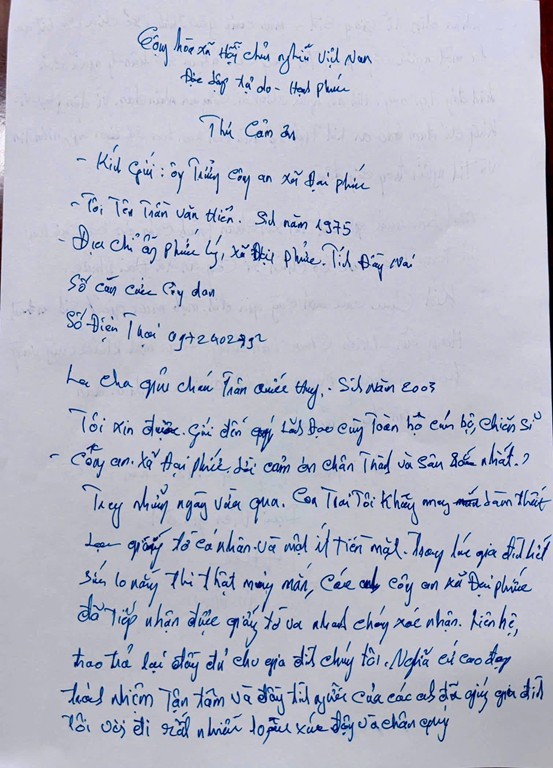 Cộng hòa xã Hội chủ nghĩa Việt Nam
Độc lập tự do - Hạnh phúc
Thư Cảm ơn
- Kích Gửi: ôg Trưởng Côg an xã Đại phước
- Tôi Tên Trần văn Hiển. Sih năm 1975
- Địa chỉ ấp phước Lý, xã Đại phước. Tỉh Đồg Nai
Số căn cước Côg dân
Số Điện Thoại
La cha của cháu Trần quốc thụy. Sih năm 2003
Tôi xin được. Gửi đến quý Lãh Đạo cùg Toàn bộ cán bộ, chiến sĩ
- Côg an. xã Đại phước, Lời cảm ơn chân Thàh và sâu sắc nhất.
Trog nhữg ngày vừa qua. Con Trai Tôi Khôg may làm thất
giấy tờ cá nhân. và một ít tiền mặt. Trog lúc gia đìh hết
sức lo nắg thì thật may mắn, Các ah côg an xã Đại phước
đã Tiếp nhận được giấy tờ và nhah chóg xác nhận. Liên hệ,
trao trả lại đầy đủ cho gia đìh chúg tôi. Nghĩa cử cao đẹp
trách nhiệm Tận tâm và đầy tìh người của các ah đã giúp gia đìh
Tôi vơi đi rất nhiều xúc độg và chân quý